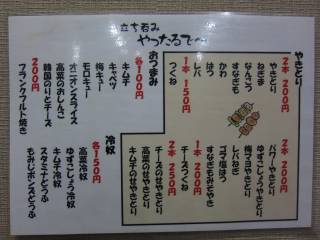 立ち呑み
やったるで〜
やきとり
2本 200円
やきとり
ねぎま
なんこつ
すなぎも
かわ
はつ
レバ
1本 150円
つくね
パワーやきとり
ゆずこしょうやきとり
梅マヨやきとり
ゴマ塩はつ
レバねぎ
すなぎもみそやき
1本 200円
チーズつくね
2本 250円
チーズのせやきとり
高菜のせやきとり
キムチのせやきとり
おつまみ
各100円
キムチ
キャベツ
梅キュー
モロキュー
オニオンスライス
高菜のおしんこ
韓国のりとチーズ
200円
フランクフルト焼き
冷奴
各150円
高菜冷奴
ゆずこしょう冷奴
キムチ冷奴
スタミナどうふ
もみじポンズどうふ